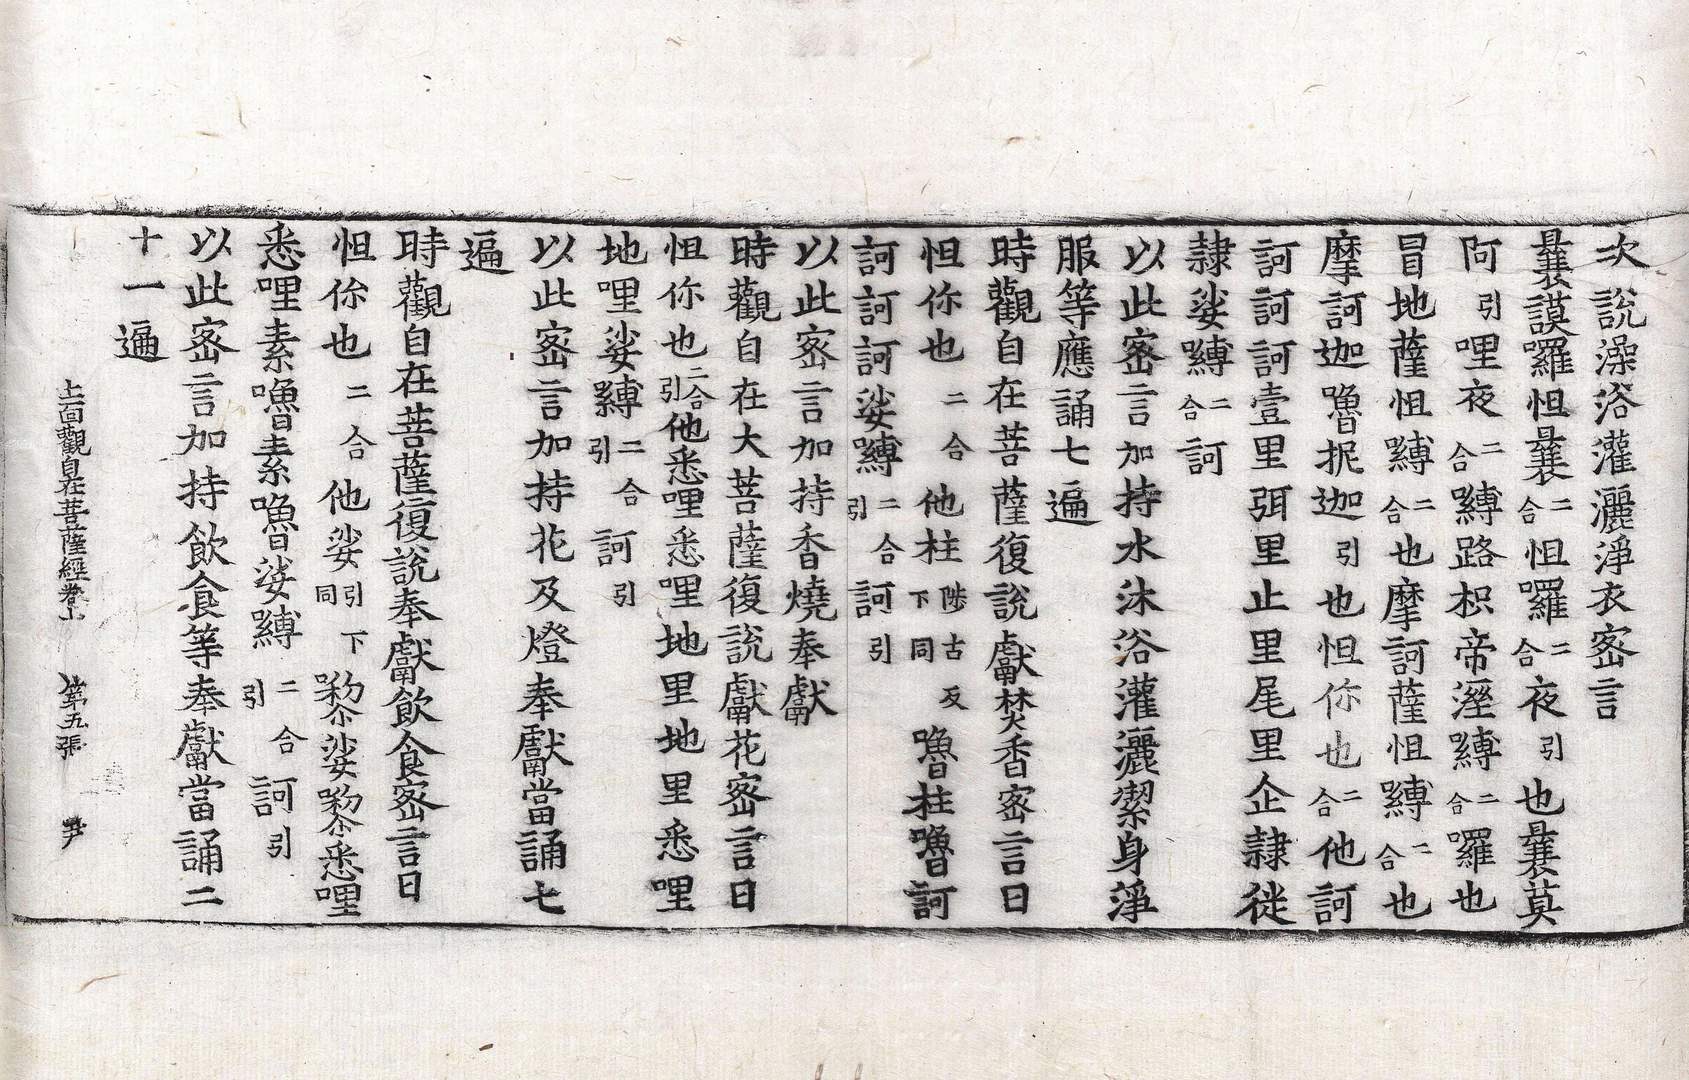 次說澡浴灌灑淨衣密言
曩謨囉怛曩二合怛囉二合夜引也曩莫
阿引哩夜二合嚩路枳帝溼嚩二合囉也
冐地薩怛嚩二合也摩訶薩怛嚩二合也
摩訶迦嚕抳迦引也怛你也二合他訶
訶訶訶壹里弭里止里尾里企隷徙
隷娑嚩二合訶
以此密言加持水沐浴灌灑潔身淨
服等應誦七遍
時觀自在菩薩復說獻焚香密言曰
怛你也二合他柱陟古反下同嚕柱嚕訶
訶訶訶娑嚩二合引訶引
以此密言加持香燒奉獻
時觀自在大菩薩復說獻花密言曰
怛你也二合引他悉哩悉哩地里地里悉哩
地哩娑嚩二合引訶引
以此密言加持花及燈奉獻當誦七
遍
時觀自在菩薩復說奉獻飲食密言曰
怛你也二合他娑引下同娑悉哩
悉哩素嚕素嚕娑嚩二合引訶引
以此密言加持飲食等奉獻當誦二
十一遍
十一面觀自在菩薩經卷上 第五張 尹